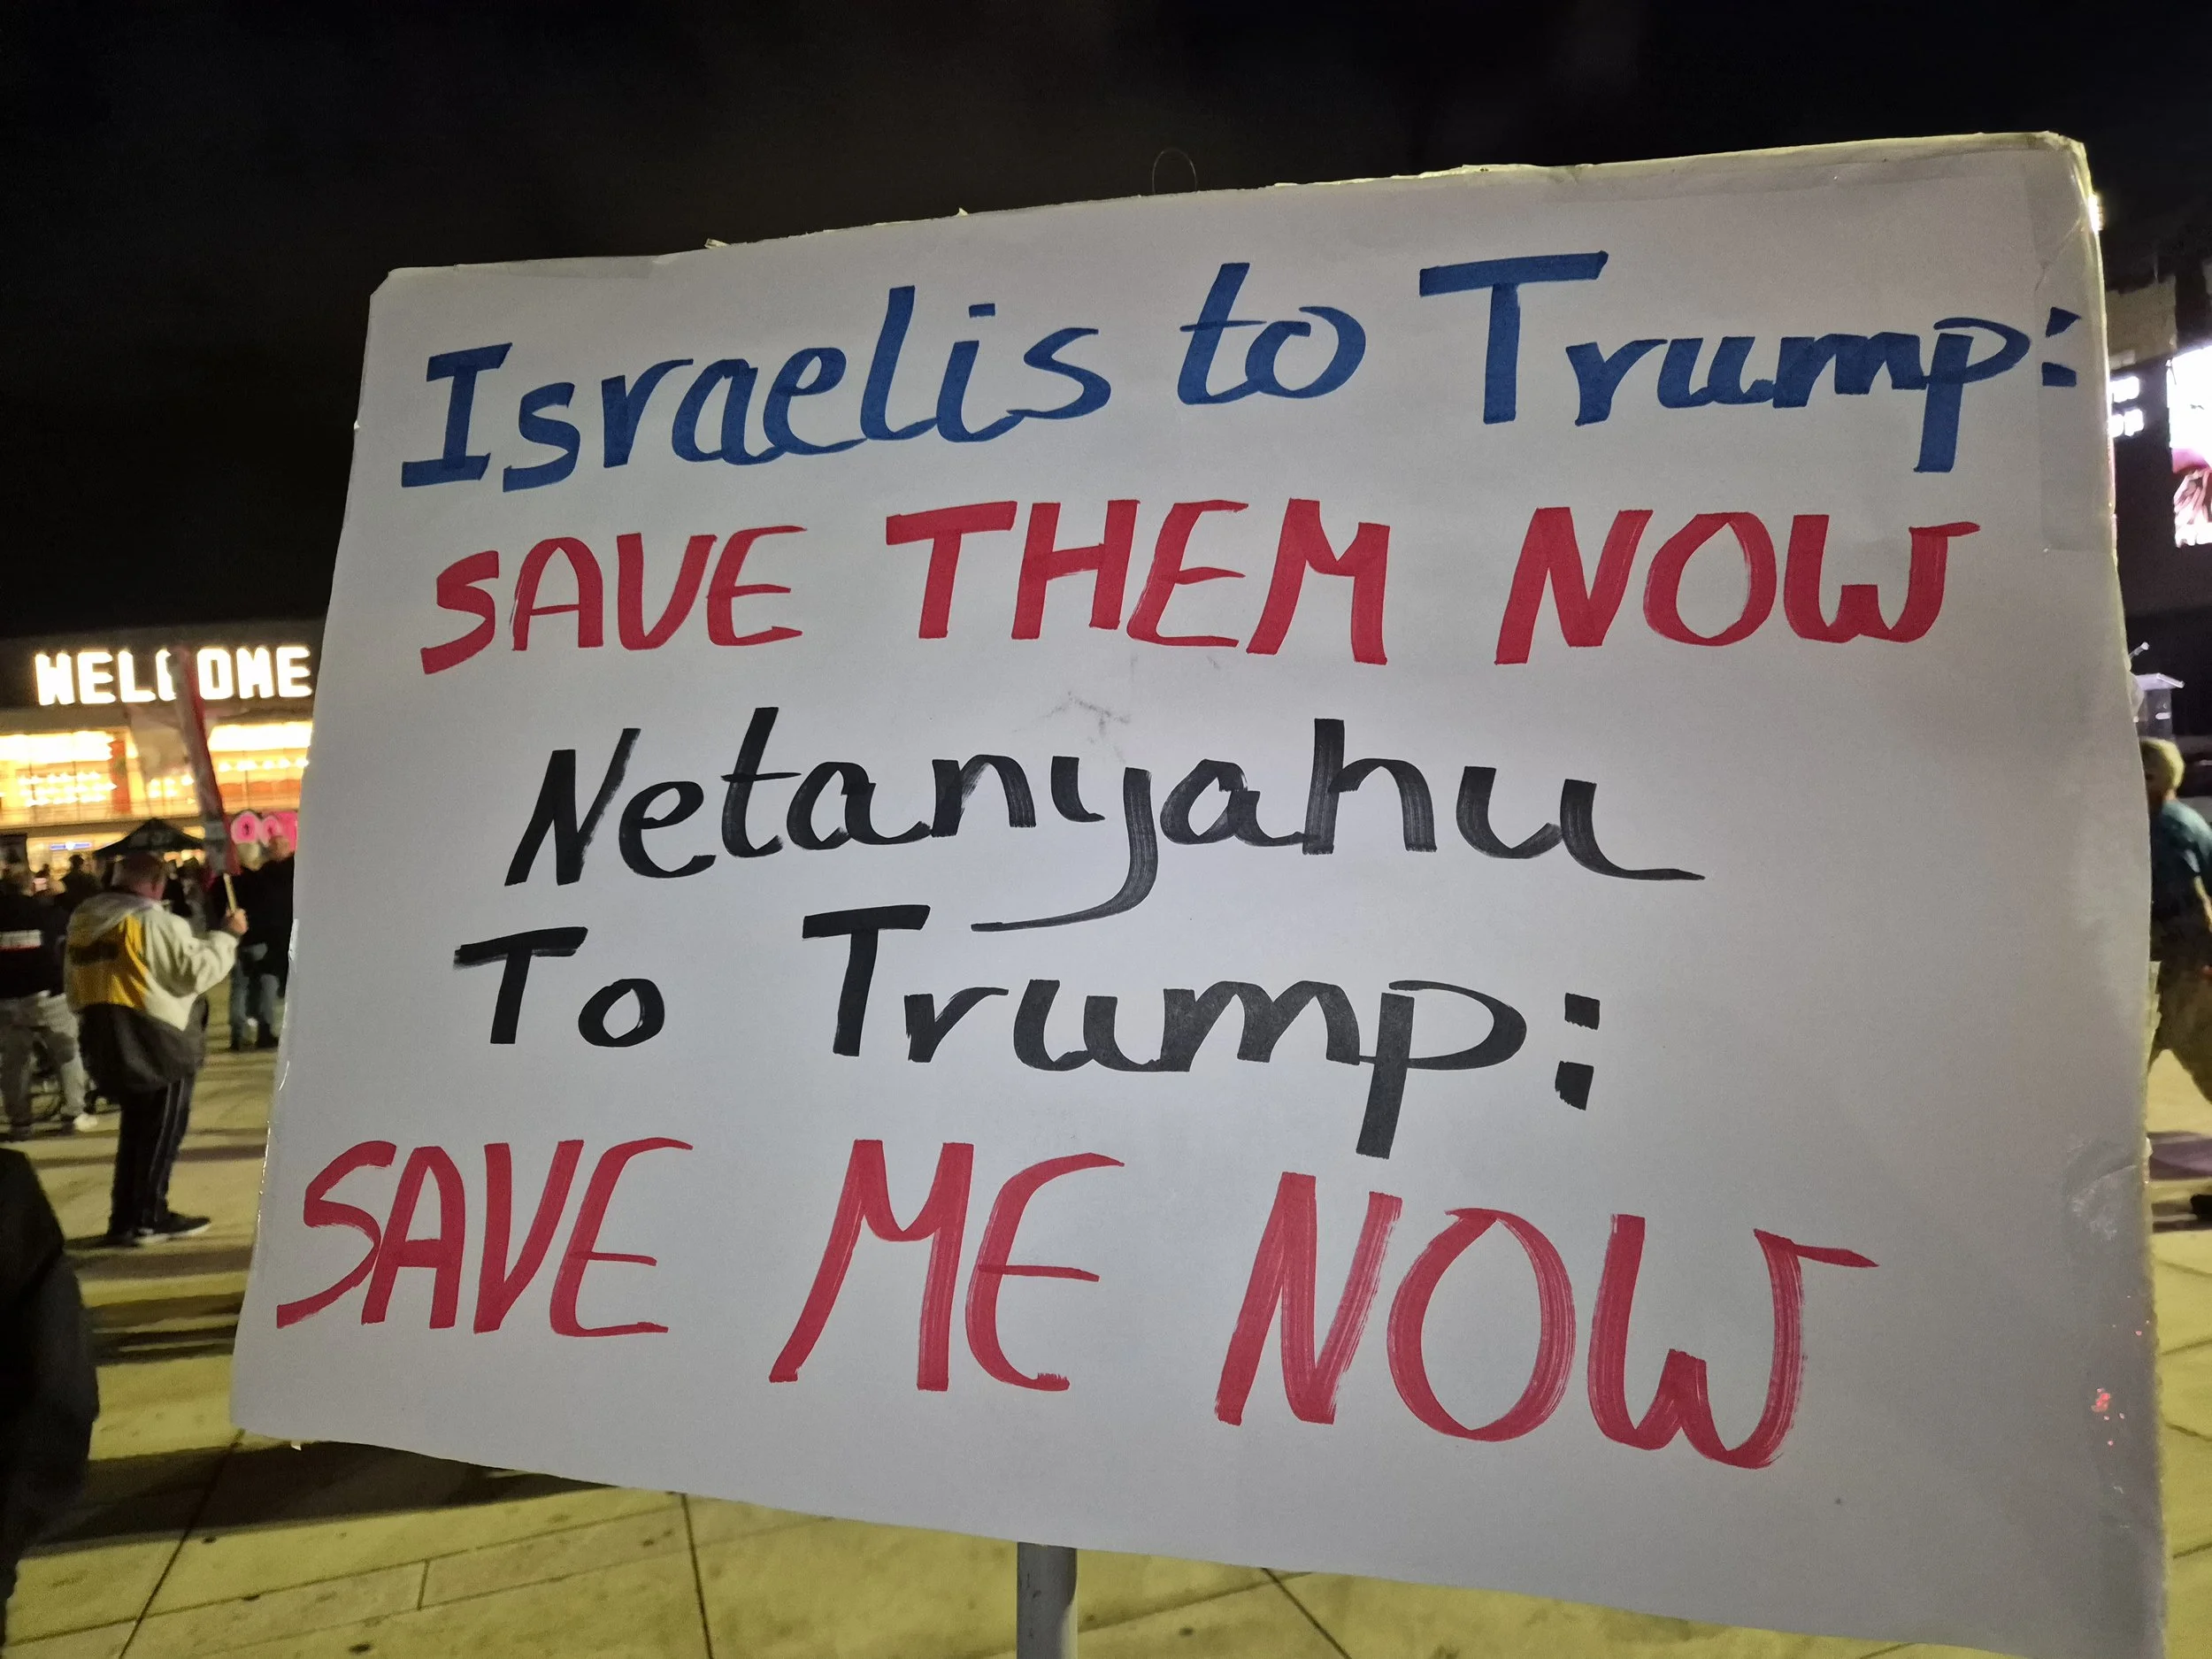 Israelis to Trump:
SAVE THEM NOW
Netanyahu
To Trump:
SAVE ME NOW
WELCOME